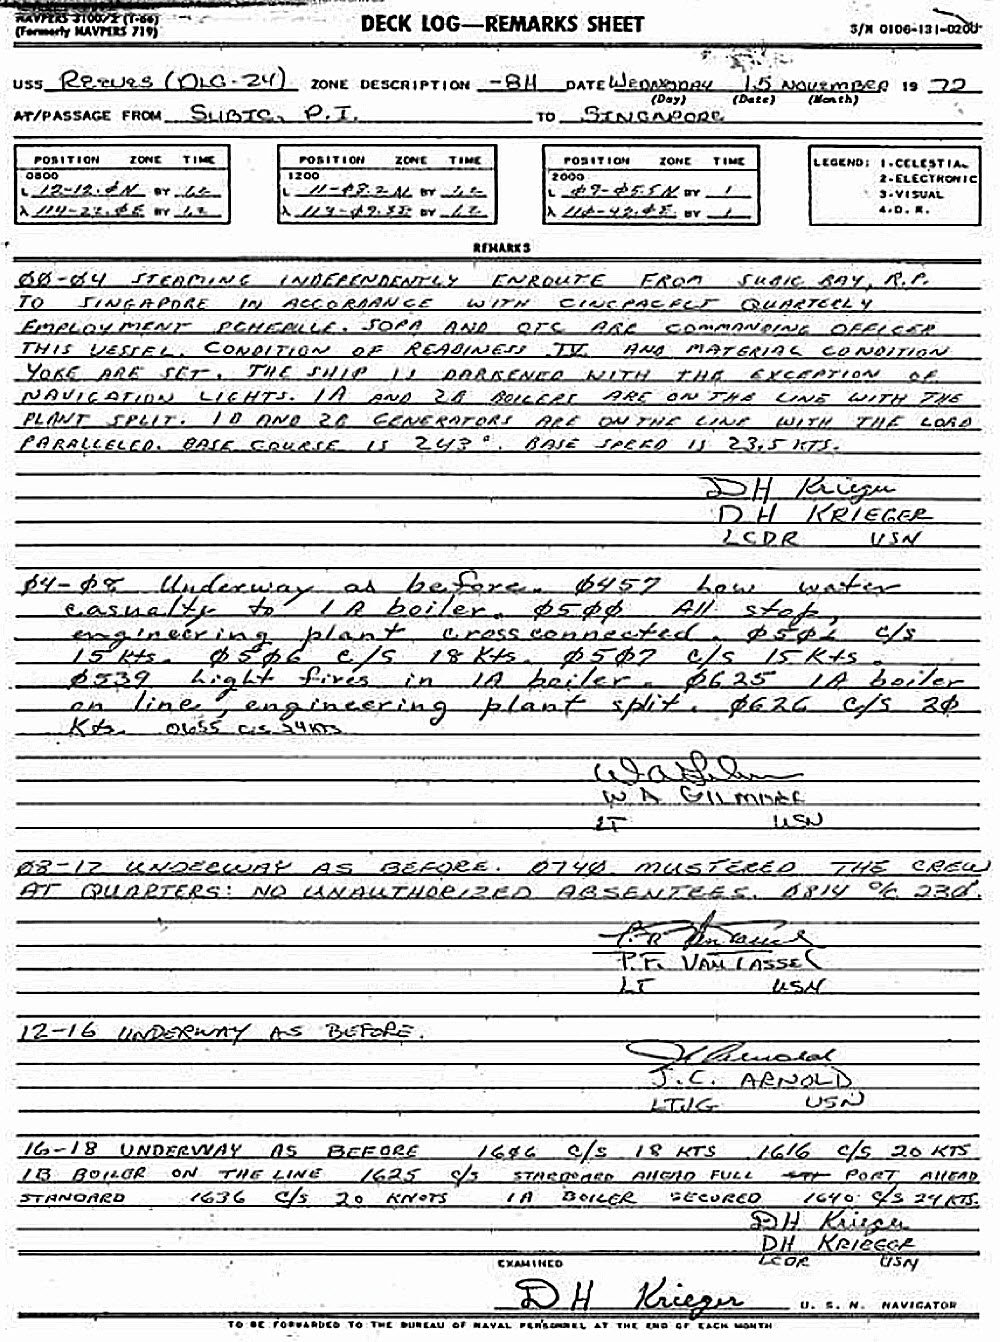 NAVPERS 3100/2 (7-66)
(Formerly NAVPERS 719)
DECK LOG—REMARKS SHEET
S/N 0106-131-0200
USS REEVES (DLG-24) ZONE DESCRIPTION -8H DATE WEDNESDAY 15 NOVEMBER 19 72
(Day) (Date) (Month)
AT/PASSAGE FROM SUBIC, P.I. TO SINGAPORE
POSITION ZONE TIME
0800
L 12-12.ØN BY 1,2
λ BY 1,2
POSITION ZONE TIME
1200
L 11-Ø8.2N BY 1,2
λ BY 1,2
POSITION ZONE TIME
2000
L Ø9-Ø5.5N BY 1
λ 11Ø-42.ØE BY 1
LEGEND: 1-CELESTIAL
2-ELECTRONIC
3-VISUAL
4-D. R.
REMARKS
ØØ-Ø4 STEAMING INDEPENDENTLY ENROUTE FROM SUBIC BAY, R.P.
TO SINGAPORE IN ACCORDANCE WITH CINCPACFLT QUARTERLY
EMPLOYMENT SCHEDULE. SOPA AND OTC ARE COMMANDING OFFICER
THIS VESSEL. CONDITION OF READINESS IV AND MATERIAL CONDITION
YOKE ARE SET. THE SHIP IS DARKENED WITH THE EXCEPTION OF
NAVIGATION LIGHTS. 1A AND 2B BOILERS ARE ON THE LINE WITH THE
PLANT SPLIT. AND GENERATORS ARE ON THE LINE WITH THE LOAD
PARALLELED. BASE COURSE IS 243°. BASE SPEED IS 23.5 KTS.
DH Krieger
D H KRIEGER
LCDR USN
Ø4-Ø8 Underway as before. Ø457 Low water
casualty to 1A boiler. Ø5ØØ All stop,
engineering plant crossconnected. Ø5Ø2 c/s
15 kts. Ø5Ø6 c/s 18 Kts. Ø5Ø7 c/s 15 Kts.
Ø539 Light fires in 1A boiler. Ø625 1A boiler
on line, engineering plant split. Ø626 c/s 2Ø
Kts. 0655 C/S 24 KTS
W A GILMORE
LT USN
Ø8-12 UNDERWAY AS BEFORE. Ø74Ø MUSTERED THE CREW
AT QUARTERS: NO UNAUTHORIZED ABSENTEES. Ø814 c/c 23Ø.
VAN TASSEL
LT USN
12-16 UNDERWAY AS BEFORE.
J C Arnold
J.C. ARNOLD
LTJG USN
16-18 UNDERWAY AS BEFORE 1606 C/S 18 KTS 1616 C/S 20 KTS
1B BOILER ON THE LINE 1625 C/S STARBOARD AHEAD FULL PORT AHEAD
STANDARD 1636 C/S 20 KNOTS 1A BOILER SECURED 1640 C/S 24 KTS.
DH Krieger
DH KRIEGER
LCDR USN
EXAMINED
DH Krieger U. S. N. NAVIGATOR
TO BE FORWARDED TO THE BUREAU OF NAVAL PERSONNEL AT THE END OF EACH MONTH